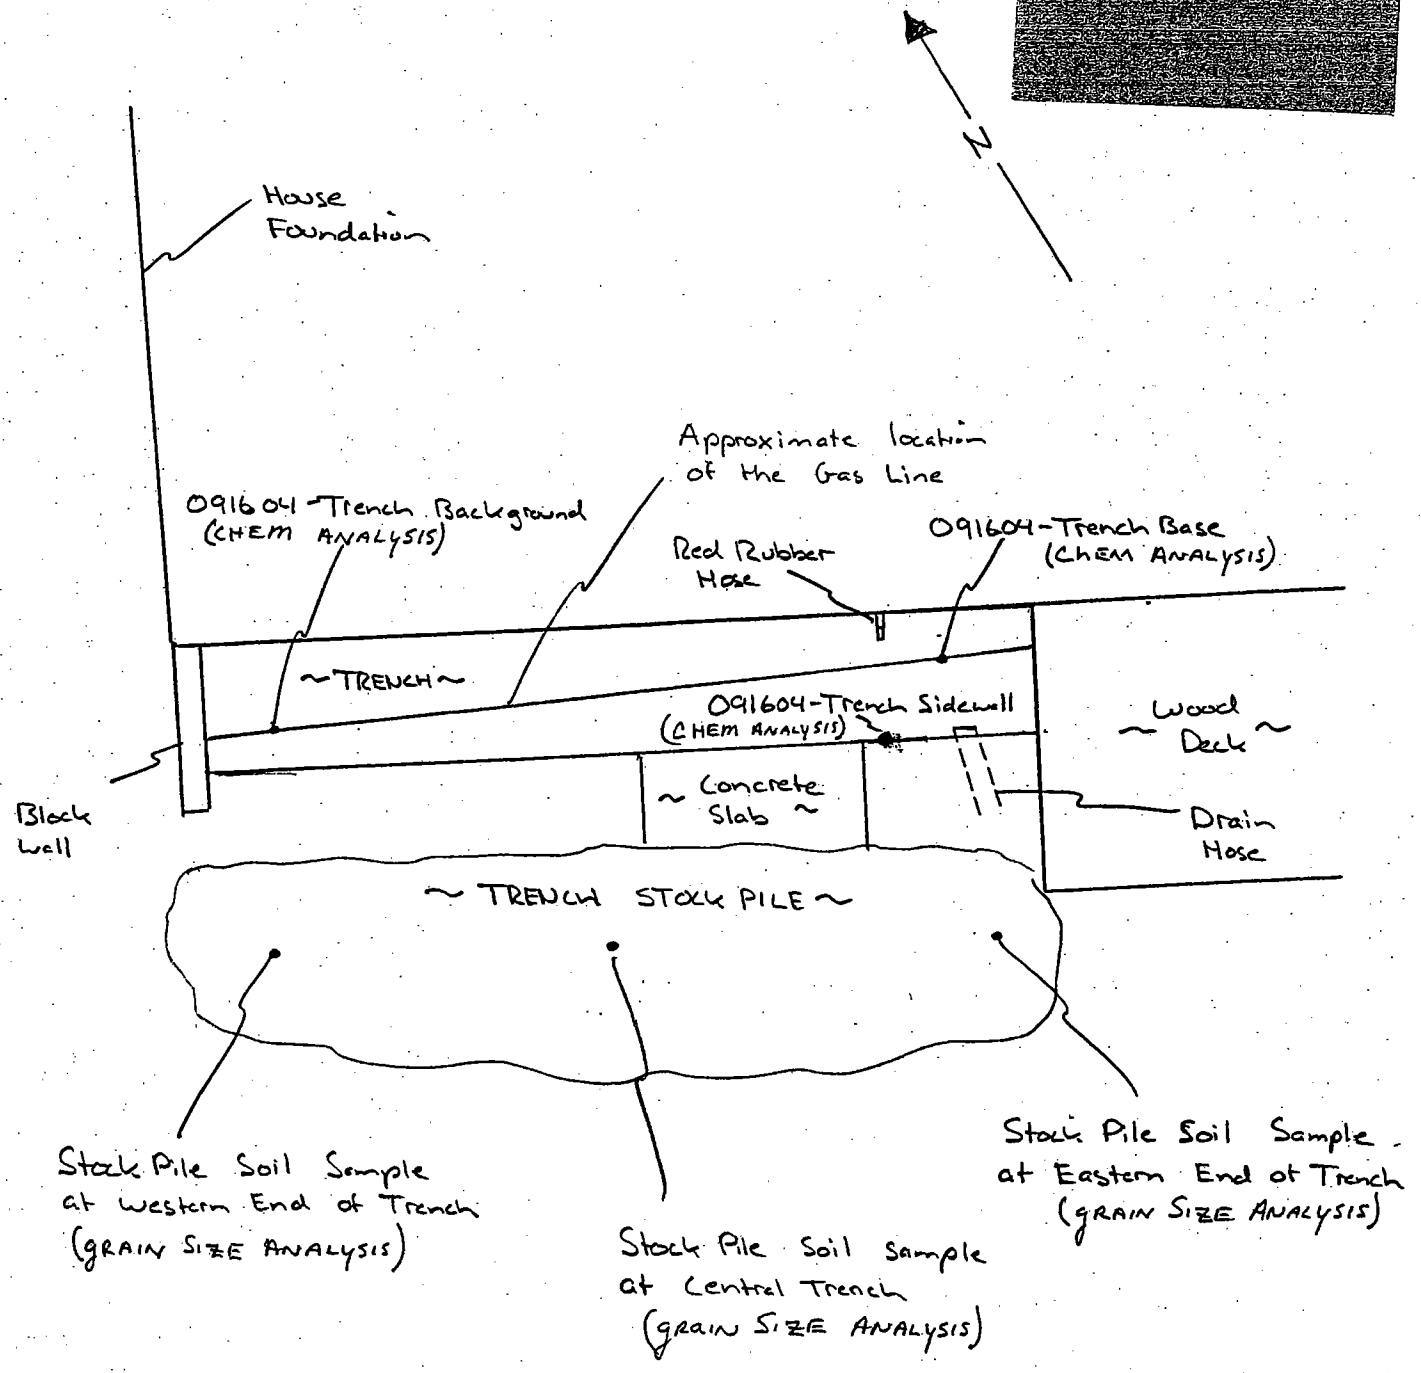 N
House
Foundation
Approximate location
of the Gas Line
091604-Trench Background
(CHEM ANALYSIS)
Red Rubber
Hose
091604-Trench Base
(CHEM ANALYSIS)
~TRENCH~
091604-Trench Sidewall
(CHEM ANALYSIS)
~ Wood
Deck ~
~ Concrete
Slab ~
Block
Wall
Drain
Hose
~ TRENCH STOCK PILE ~
Stock Pile Soil Sample
at Western End of Trench
(GRAIN SIZE ANALYSIS)
Stock Pile Soil Sample
at Central Trench
(GRAIN SIZE ANALYSIS)
Stock Pile Soil Sample
at Eastern End of Trench
(GRAIN SIZE ANALYSIS)